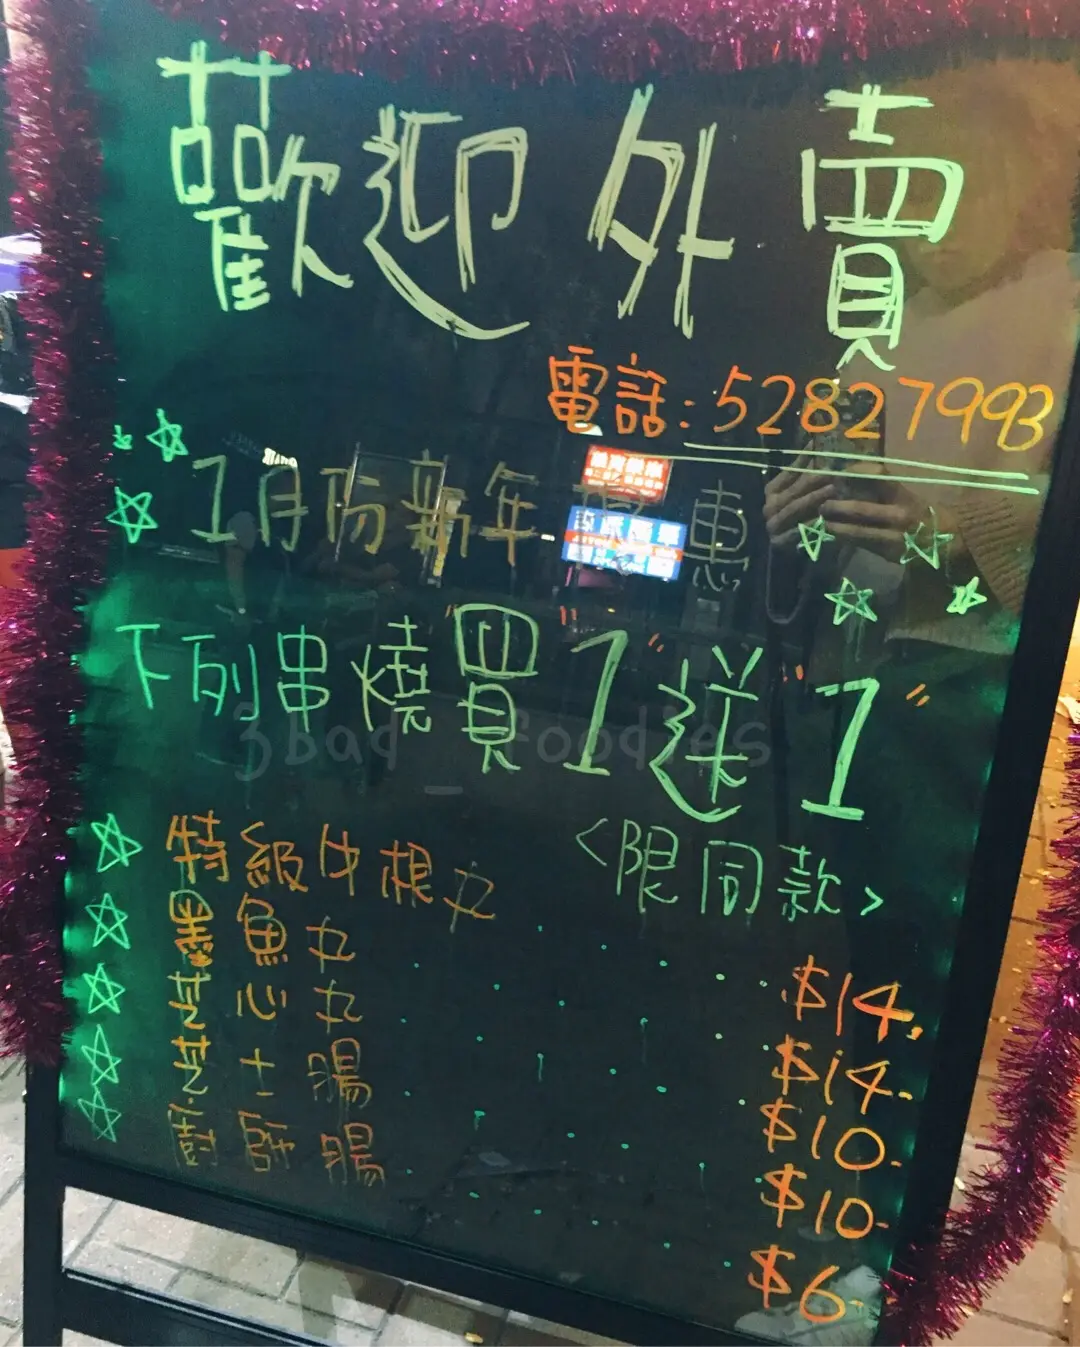 歡迎外賣
電話:52827993
1月份新年 惠
下列串燒"買1""送1"
<限同款>
特級牛根丸 $14.
墨魚丸 $14.
芝心丸 $10.
芝士腸 $10.
廚師腸 $6.
3bad_foodies